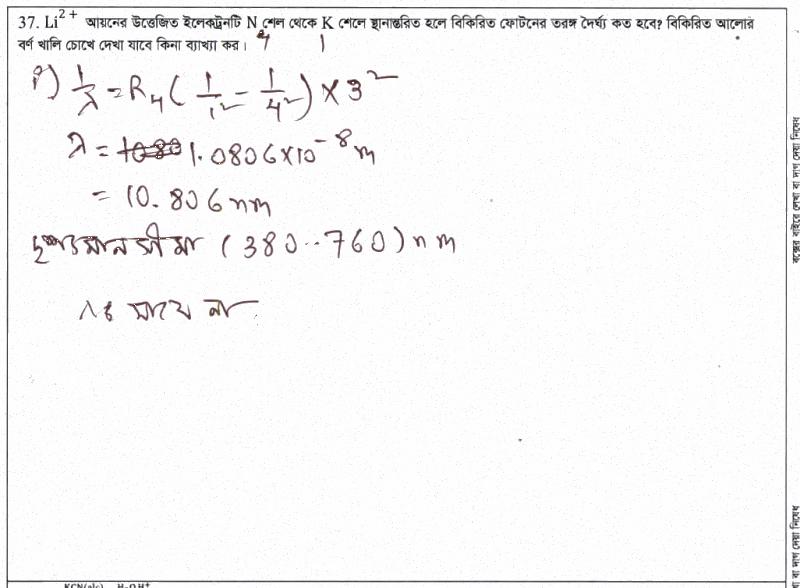 37. Li²⁺ আয়নের উত্তেজিত ইলেকট্রনটি N শেল থেকে K শেলে স্থানান্তরিত হলে বিকিরিত ফোটনের তরঙ্গ দৈর্ঘ্য কত হবে? বিকিরিত আলোর
বর্ণ খালি চোখে দেখা যাবে কিনা ব্যাখ্যা কর।
4 1
1/λ = R_H (1/1² - 1/4²) × 3²
λ = 1.0806×10⁻⁸ m
= 10.806 nm
দৃশ্যমান সীমা (380--760) nm
যাবে না
বক্সের বাইরে লেখা বা দাগ দেয়া নিষেধ
বা দাগ দেয়া নিষেধ
KCN(alc) H₂O/H⁺